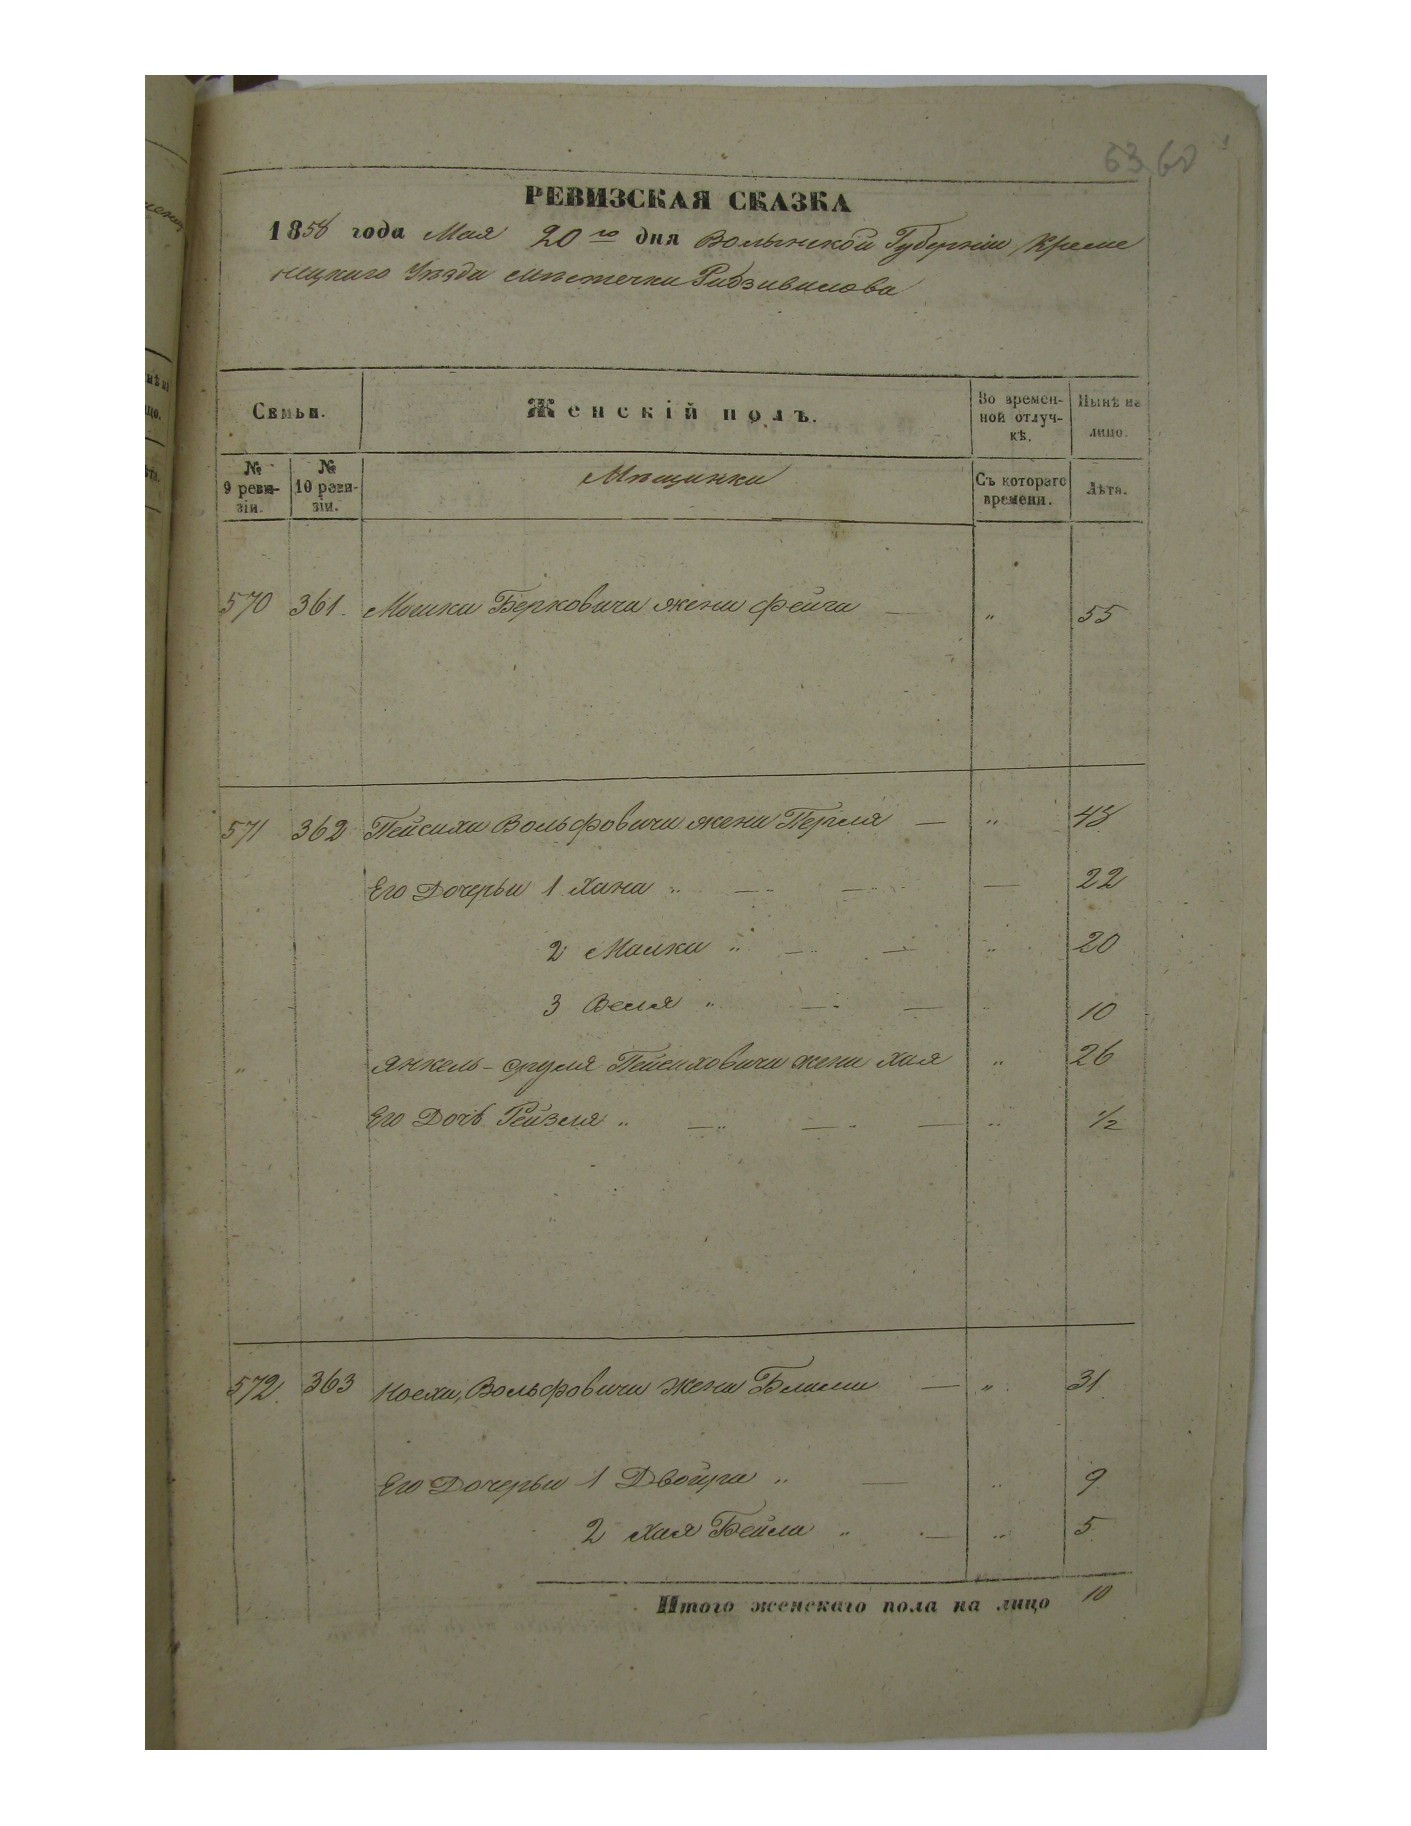 63 60
РЕВИЗСКАЯ СКАЗКА
1858 года Мая 20го дня Волынской Губерніи Креме
нецкаго Уѣзда мѣстечка Радзивилова
Семьи.
Женскій полъ.
Во времен-
ной отлуч-
кѣ.
Нынѣ на
лицо.
№
9 реви-
зіи.
№
10 реви-
зіи.
Мѣщанки
Съ котораго
времени.
Лѣта.
570 361. Мошка Берковича жена Фейга — " 55
571 362 Пейсаха Вольфовича жена Перля — " 48
Его Дочерьи 1 Хана " — " — " — 22
2 Малка " — " — " 20
3 Веля " — " — " 10
" Янкель-Сруля Пейсаховича жена Хая " 26
Его Дочь Рейзля " — " — " — " 1/2
572. 363 Носха, Вольфовича жена Блима — " 31
Его Дочерьи 1 Двойра " — " 9
2 Хая Бейла " — " 5
Итого женскаго пола на лицо 10